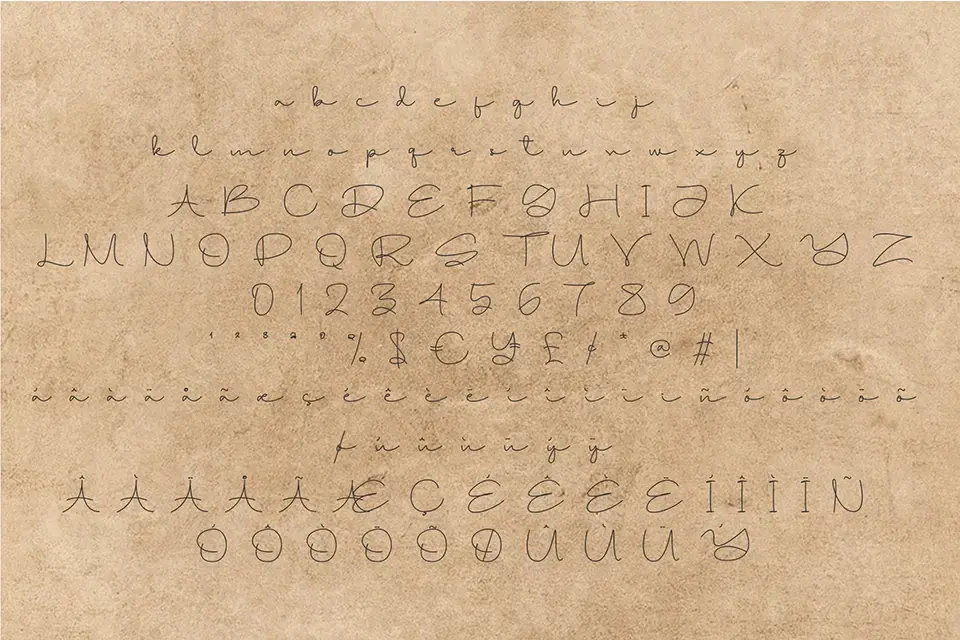 a b c d e f g h i j
k l m n o p q r s t u v w x y z
A B C D E F G H I J K
L M N O P Q R S T U V W X Y Z
0 1 2 3 4 5 6 7 8 9
¹ ² ³ % $ € ¥ £ ¢ * @ # |
á â à ā å ã æ ç é ê è ē í î ì ī ñ ó ô ò ō õ
ø ú û ù ū ý ȳ
Â À Ā Å Ã Æ Ç É Ê È Ē Í Î Ì Ī Ñ
Ó Ô Ò Ō Õ Ø Û Ù Ū Ý